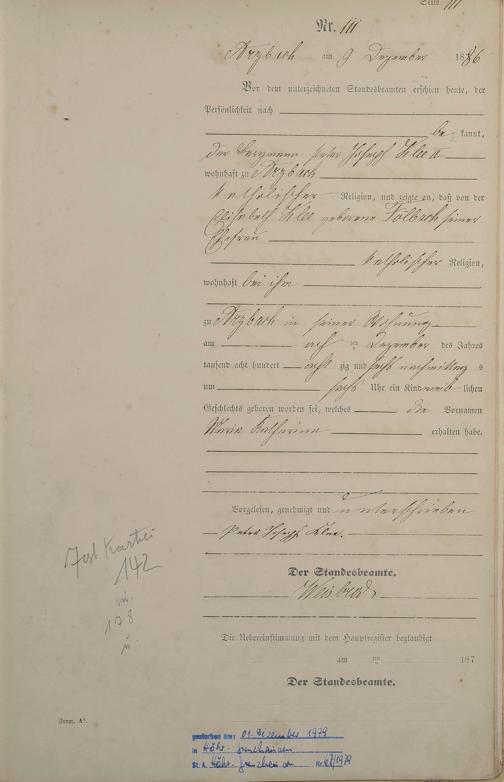 Seite 111
Nr. 111
Arzbach am 9 Dezember 1886
Vor dem unterzeichneten Standesbeamten erschien heute, der
Persönlichkeit nach
be kannt,
der Bergmann Peter Joseph Klee II
wohnhaft zu Arzbach
katholischer Religion, und zeigte an, daß von der
Elisabeth Klee geborene seiner
Ehefrau
katholischer Religion,
wohnhaft bei ihm
zu Arzbach in seiner Wohnung
am ten Dezember des Jahres
tausend acht hundert acht zig und sechs nachmittags
um sechs Uhr ein Kind weib lichen
Geschlechts geboren worden sei, welches die Vornamen
Maria Katharina erhalten habe.
Vorgelesen, genehmigt und unterschrieben
Peter Joseph Klee.
Der Standesbeamte.
Weisbrod
Die Uebereinstimmung mit dem Hauptregister beglaubigt
am ten 187
Der Standesbeamte.
Kartei
142
u.
178
u
Form. A¹.
gestorben am: 01. Dezember 1979
in Höhr-Grenzhausen
St. A. Höhr-Grenzhausen Nr. /1979